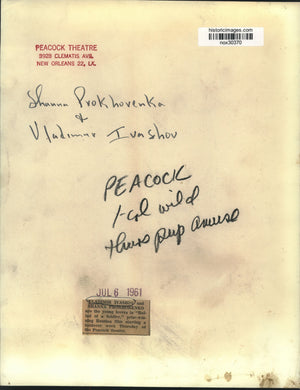 historicimages.com
nox30370
PEACOCK THEATRE
3928 CLEMATIS AVE.
NEW ORLEANS 22, LA.
Shanna Prokhorenka
&
Vladimir Ivashov
PEACOCK
1-col wild
thurs pmp amuse
JUL 6 1961
VLADIMIR IVASHOV and
SHANNA PROKHORENKO
are the young lovers in "Bal-
lad of a Soldier," prize-win-
ning Russian film starting a
limited week Thursday at
the Peacock Theater.